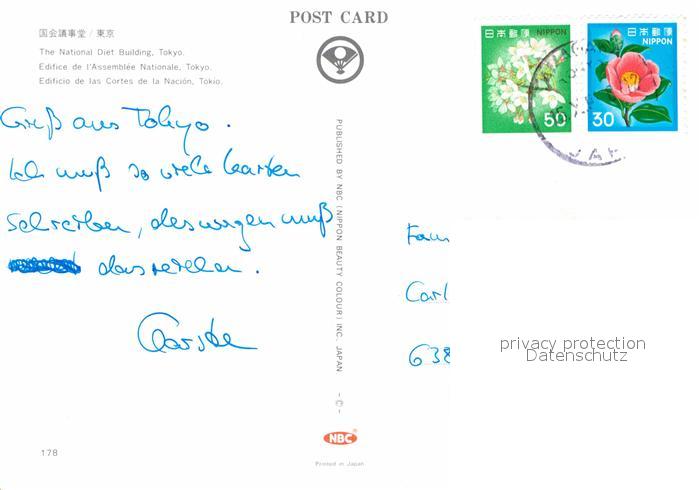 POST CARD
国会議事堂 / 東京
The National Diet Building, Tokyo.
Edifice de l'Assemblée Nationale, Tokyo.
Edificio de las Cortes de la Nación, Tokio.
日本郵便 NIPPON
50
日本郵便
NIPPON
30
Gruß aus Tokyo.
Ich muß so viele Karten
schreiben, deswegen muß
das reichen.
PUBLISHED BY NBC (NIPPON BEAUTY COLOUR) INC. JAPAN
Fam
Carl
638
privacy protection
Datenschutz
- © -
NBC
Printed in Japan
178